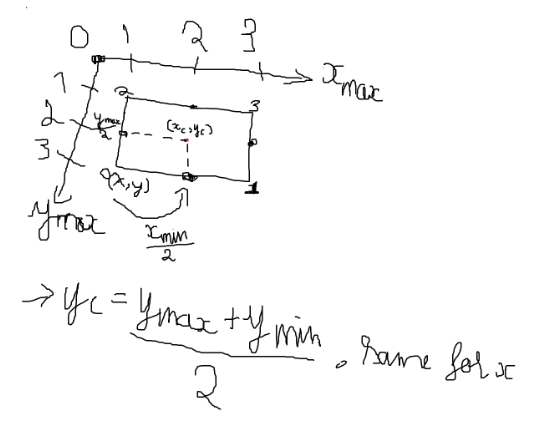 0 1 2 3
x max
1
2
3
2 3
y max
2
(x_c, y_c)
0(x, y)
1
y max
x min
2
→ y_c = y max + y min
2
. Same for x